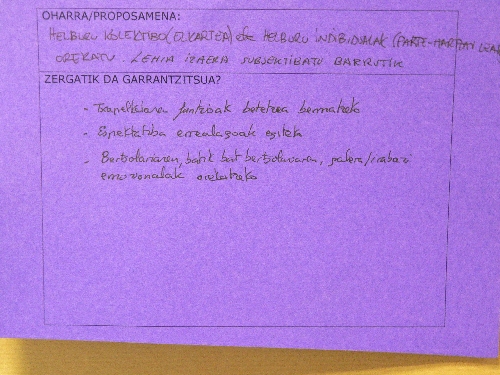 OHARRA/PROPOSAMENA:
HELBURU KOLEKTIBO (ELKARTEA) eta HELBURU INDIBIDUALAK (PARTE-HARTZAILEAK
OREKATU. LEHIA IZAERA SUBJEKTIBATU BARRUTIK
ZERGATIK DA GARRANTZITSUA?
- Txapelketaren funtzioak betetzea bermatzeko
- Espektatiba errealagoak egiteko
- Bertsolariaren, batik bat bertsolariaren, galera/irabazi
emozionalak orekatzeko